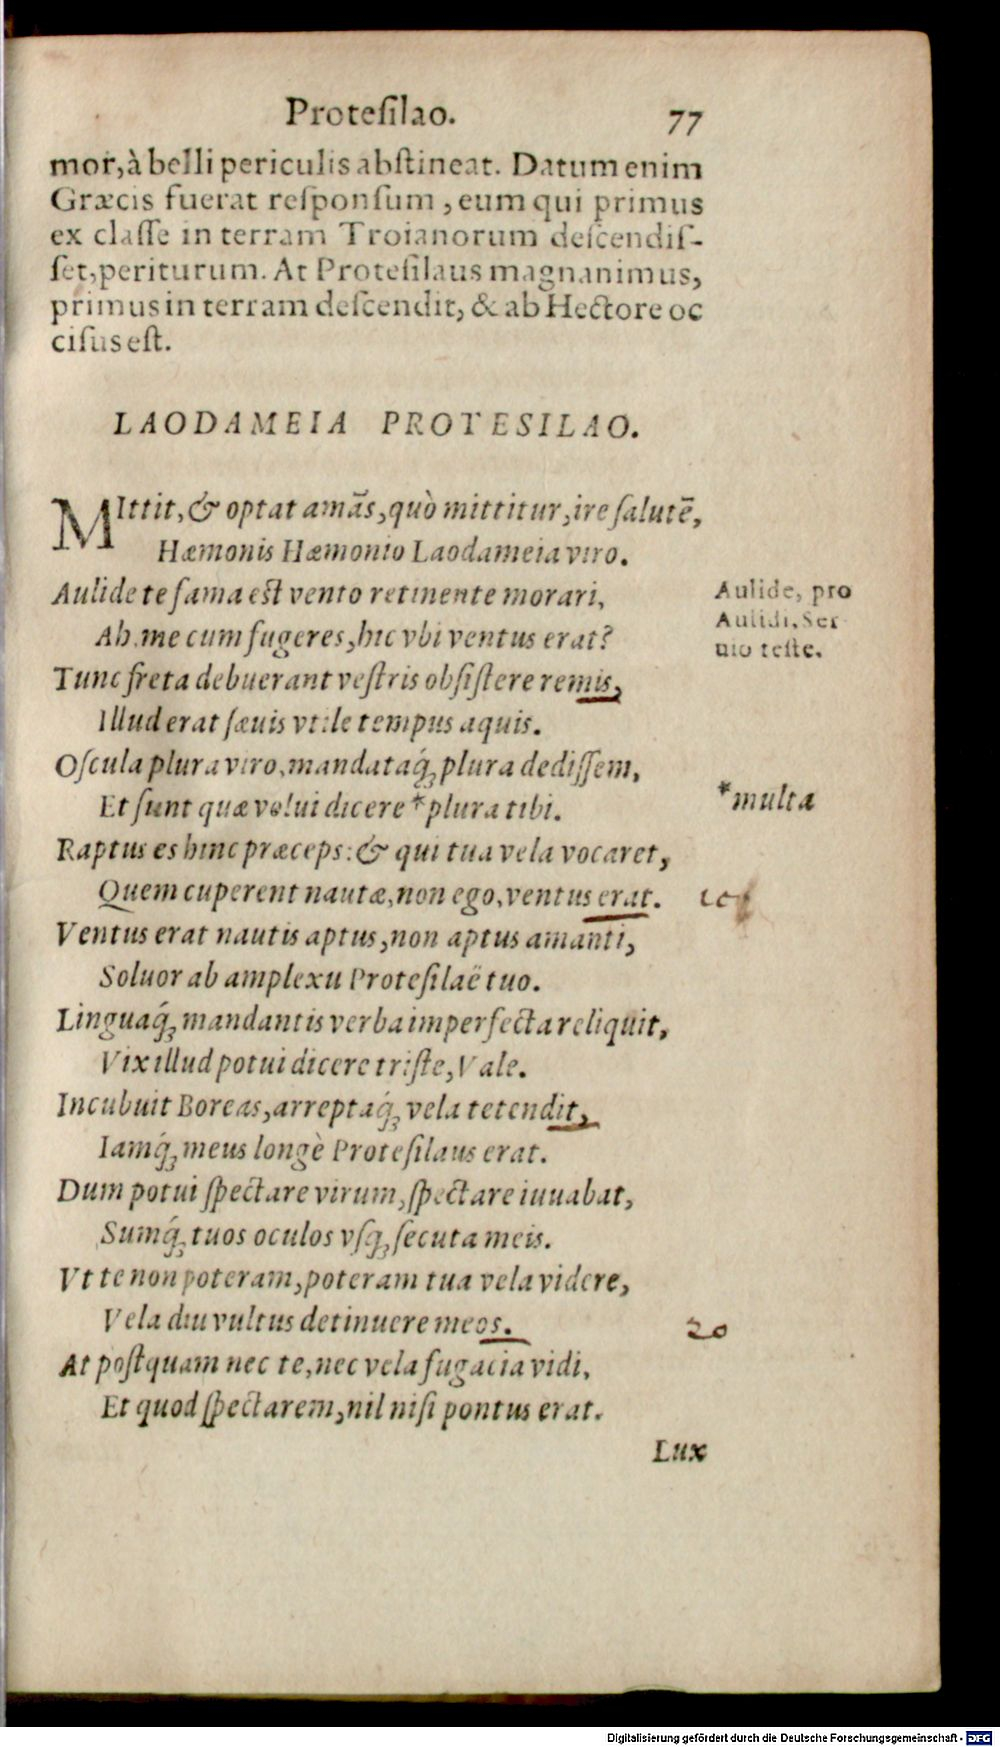 Proteſilao. 77
mor, à belli periculis abſtineat. Datum enim
Græcis fuerat reſponſum, eum qui primus
ex claſſe in terram Troianorum deſcendiſ-
ſet, periturum. At Proteſilaus magnanimus,
primus in terram deſcendit, & ab Hectore oc
ciſus eſt.
LAODAMEIA PROTESILAO.
MIttit, & optat amãs, quò mittitur, ire ſalutẽ,
Hæmonis Hæmonio Laodameia viro.
Aulide te fama eſt vento retinente morari,
Aulide, pro
Ah. me cum fugeres, hic vbi ventus erat?
Aulidi, Ser
uio teſte.
Tunc freta debuerant veſtris obſiſtere remis,
Illud erat ſæuis vtile tempus aquis.
Oſcula plura viro, mandataq́; plura dediſſem,
Et ſunt quæ volui dicere *plura tibi.
*multa
Raptus es hinc præceps: & qui tua vela vocaret,
Quem cuperent nautæ, non ego, ventus erat.
Ventus erat nautis aptus, non aptus amanti,
Soluor ab amplexu Proteſilaë tuo.
Linguaq́; mandantis verba imperfecta reliquit,
Vix illud potui dicere triſte, Vale.
Incubuit Boreas, arreptaq́; vela tetendit,
Iamq́; meus longè Proteſilaus erat.
Dum potui ſpectare virum, ſpectare iuuabat,
Sumq́; tuos oculos vſq; ſecuta meis.
Vt te non poteram, poteram tua vela videre,
Vela diu vultus detinuere meos.
20
At poſtquam nec te, nec vela fugacia vidi,
Et quod ſpectarem, nil niſi pontus erat.
Lux
Digitalisierung gefördert durch die Deutsche Forschungsgemeinschaft - DFG